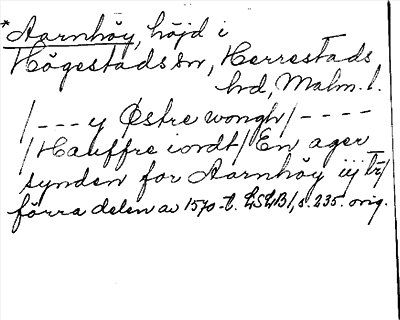 *Aarnhöy, höjd i
Högestads sn, Herrestads
hd, Malm. l.
/ --- y Østre wongh / ----
/ Hauffre iordt / En ager
synden for Aarnhöy iij
förra delen av 1570-t. LSLB1, s. 235. orig.